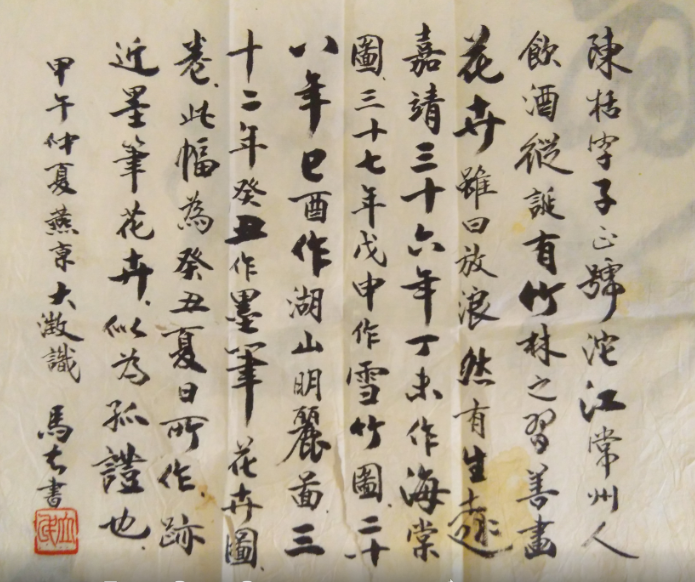 陳栝字子正號沱江常州人
飲酒縱誕有竹林之習善畫
花卉雖曰放浪然有生趣
嘉靖三十六年丁未作海棠
圖三十七年戊申作雪竹圖二十
八年己酉作湖山明麗圖三
十二年癸丑作墨筆花卉圖
卷此幅為癸丑夏日所作跡
近墨筆花卉似為孤證也
甲午仲夏燕京大澂識
馬士書